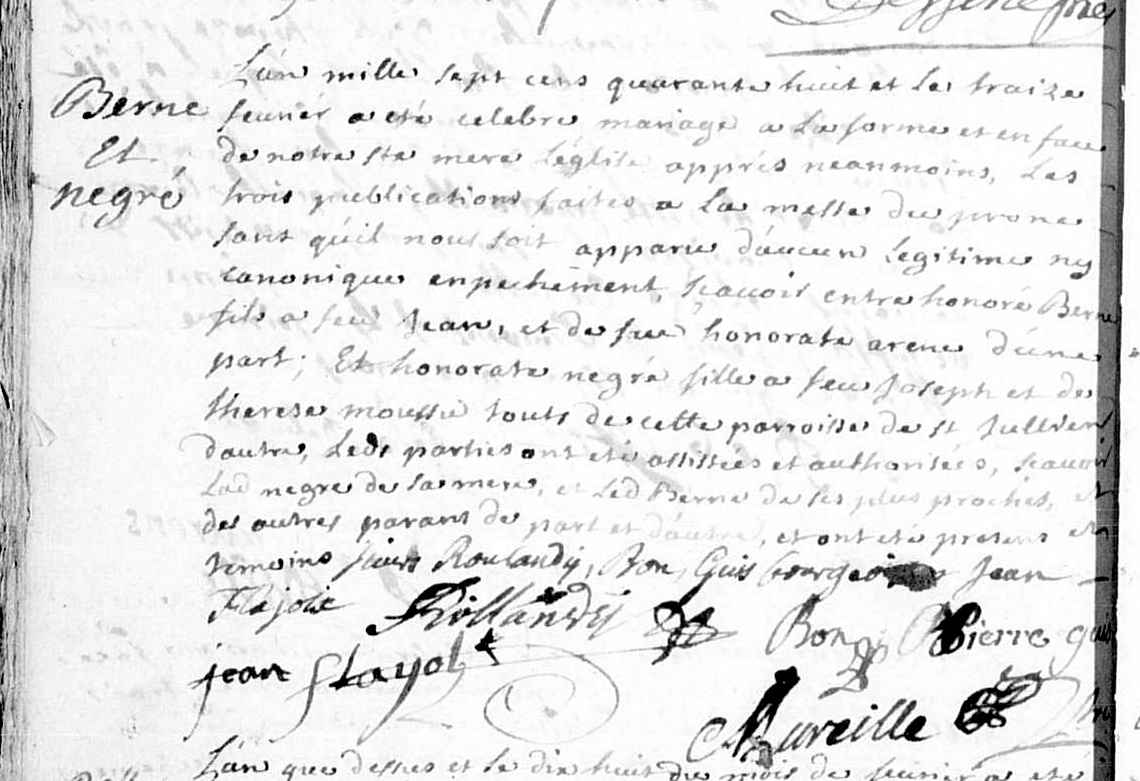 Berne
Et
negré
L'an mille sept cens quarante huit et le traize
fevrier a eté celebre mariage a la forme et en face
de notre ste mere L'église apprés neanmoins, les
trois publications faites a la messe du prone
sans qu'il nous soit apparu d'aucun legitime ny
canonique enpechement, sçavoir entre honoré Berne
fils a feu Jean, et de feue honorate arene d'une
part; Et honorate negré fille a feu Joseph et de
therese moussu touts de cette parroisse de st Jullien
d'autre, Leds parties ont été assistées et authorisees, scavoir
Lad negre de sa mere, et Led Berne de ses plus proches, et
des autres parans de part et d'autre, et ont eté presens et
temoins sieurs Roulandy, Bon, Guis bourgeois Jean
Flajolt Rollandy Bon Pierre
jean flayol
Mureille
L'an que dessus et le dix huit du mois de fevrier a eté